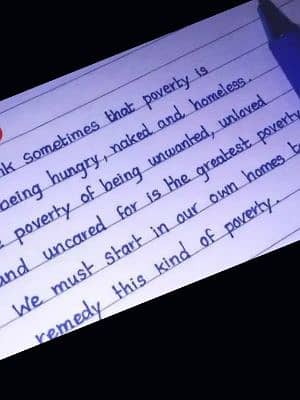 nk sometimes that poverty is
being hungry, naked and homeless.
poverty of being unwanted, unloved
and uncared for is the greatest poverty
We must start in our own homes t
remedy this kind of poverty.